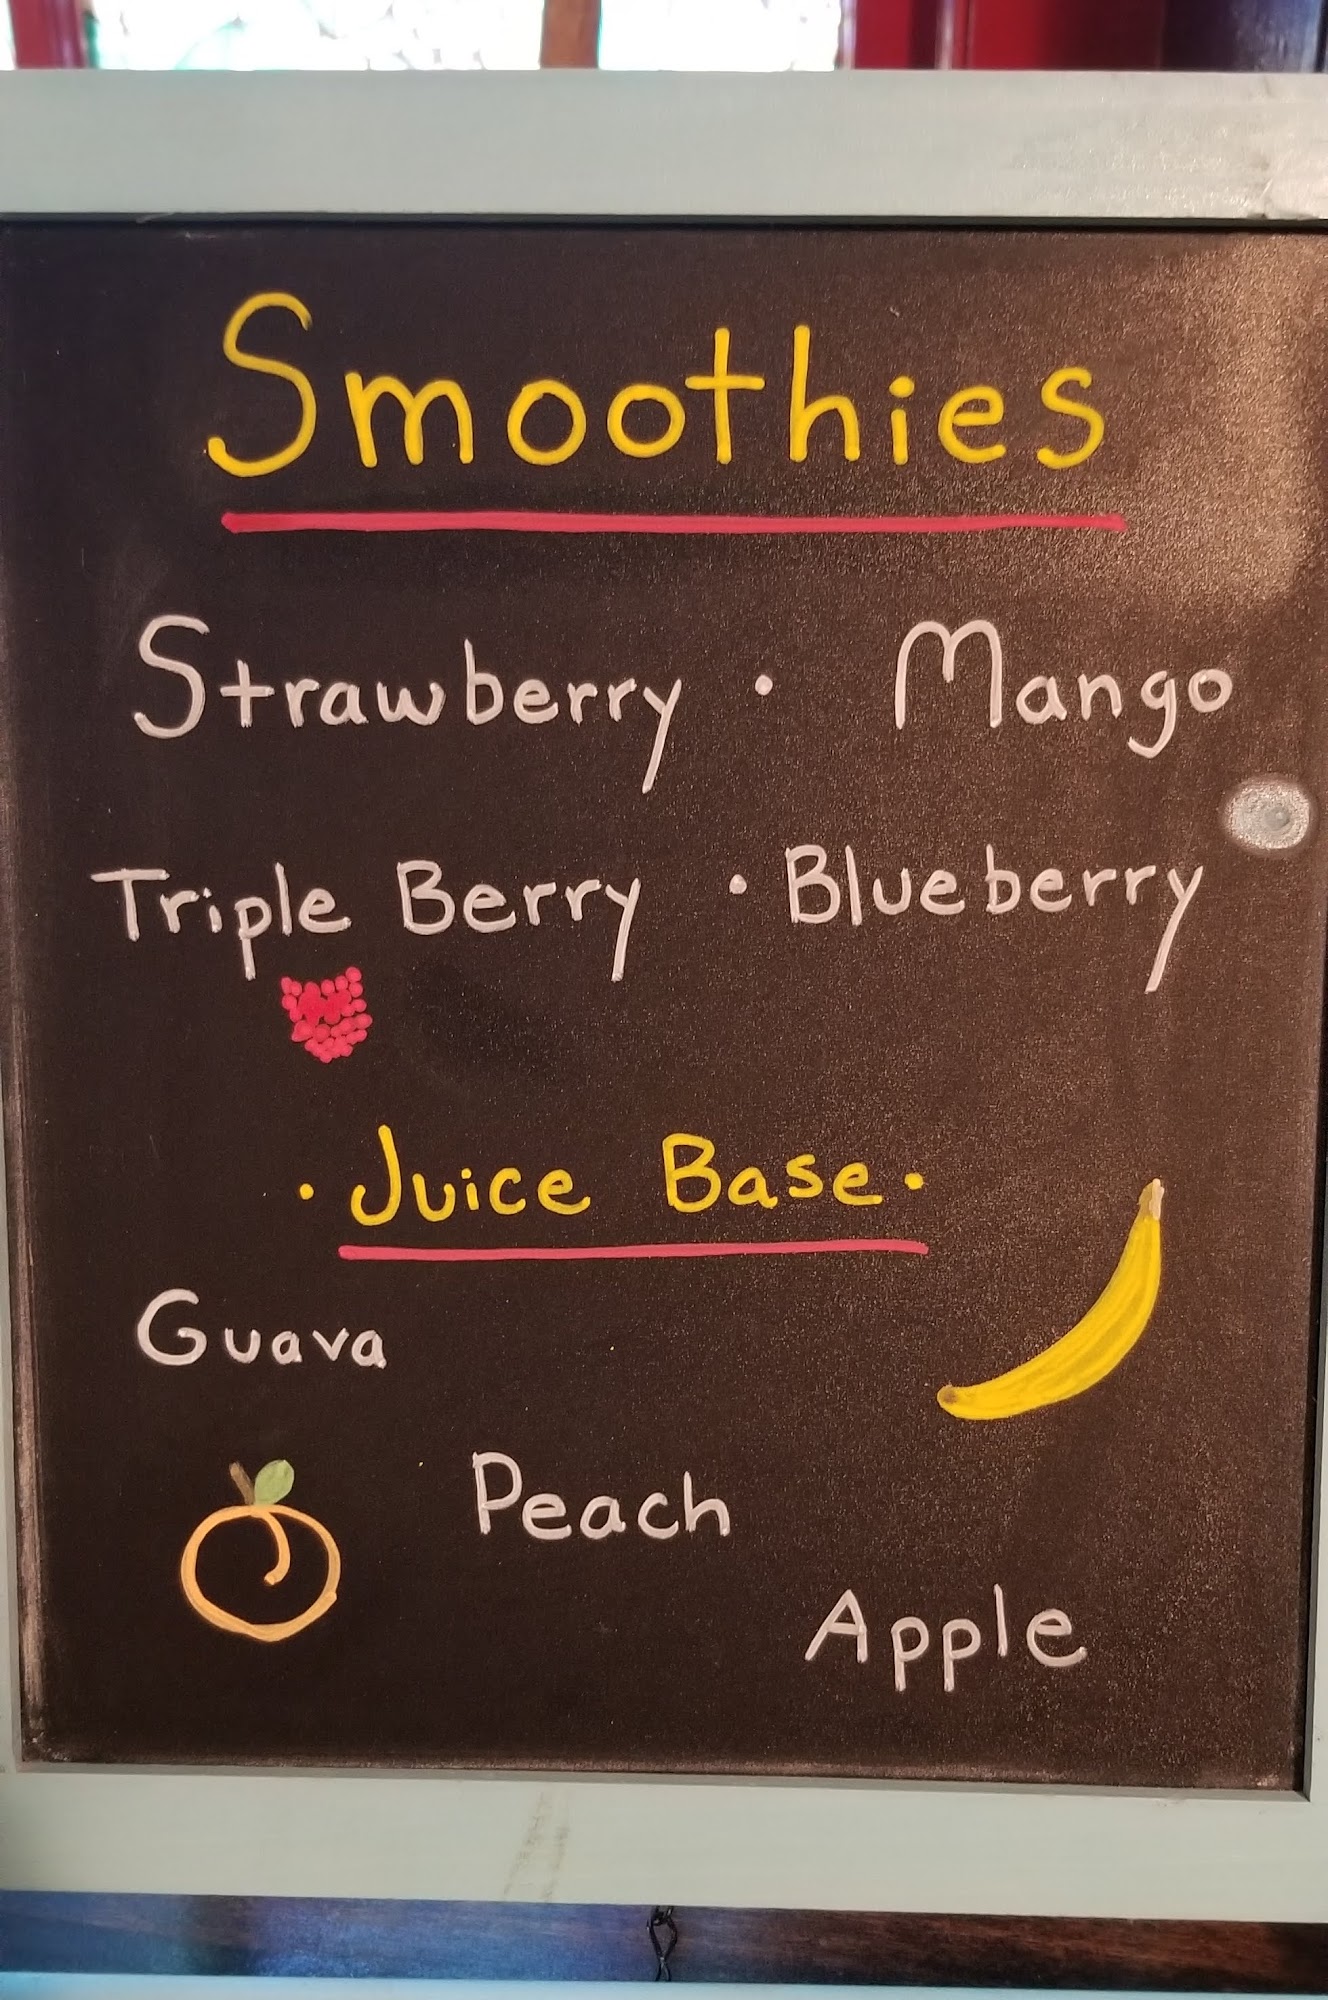 Smoothies
Strawberry · Mango
Triple Berry · Blueberry
· Juice Base ·
Guava
Peach
Apple